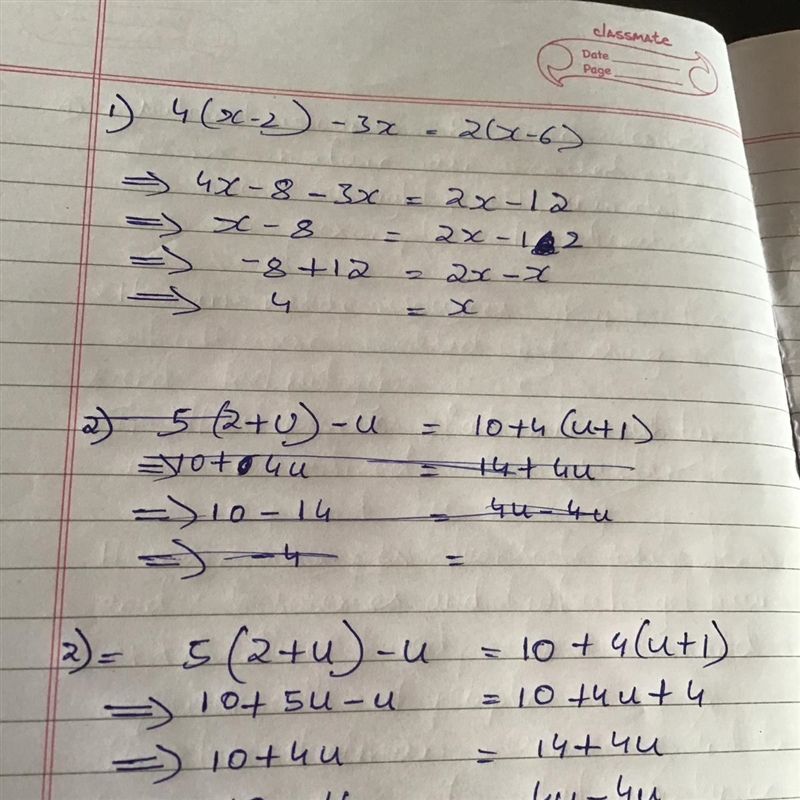 classmate
Date
Page
1) 4(x-2) -3x = 2(x-6)
⇒ 4x-8-3x = 2x-12
⇒ x-8 = 2x-12
⇒ -8+12 = 2x-x
⇒ 4 = x
2) 5(2+u)-u = 10+4(u+1)
⇒ 10+4u = 14+4u
⇒ 10-14 = 4u-4u
⇒ -4 =
2)= 5(2+u)-u = 10+4(u+1)
⇒ 10+5u-u = 10+4u+4
⇒ 10+4u = 14+4u
4u-4u